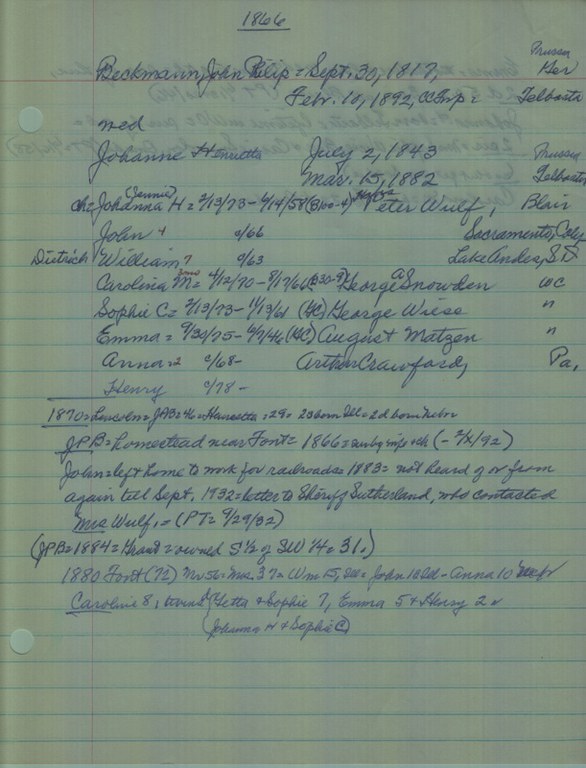 1866
Beckmann, John Philip = Sept. 30, 1817, Ger
Febr. 10, 1892, CC Imp =
med
Johanne Henrietta July 2, 1843
Mar. 15, 1882
ch = Johanna (Jennie) H = 2/13/73 - 4/14/58 Peter Wulf, Blair
John 4 c/66 Sacramento, Caly
Dietrich William 7 c/63 Lake Andes, SD
Carolina M = 4/12/70 - 8/17/66 George A Snowden WC
Sophie C = 2/13/73 - 11/13/61 (GC) George Wiese "
Emma = 9/30/75 - 4/7/46 (GC) August Matzen "
Anna = 2 c/68 - Arthur Crawford, Pa.
Henry c/78 -
1870 = Lincoln = JPB = 46 = Henrietta = 29 = 2s born Ill = 2d born Nebr
JPB = homestead near Font = 1866 = (- 2/x/92)
John = left home to work for railroads = 1883 = not heard of or from
again till Sept. 1932 = letter to Sheriff Sutherland, who contacted
Mrs Wulf. = (PT = 9/29/32)
(JPB = 1884 = Grant = owned S ½ of SW ¼ = 31.)
1880 Font (72) Mr 56 = Mrs. 37 = Wm 15, Ill = John 12 - Anna 10
Caroline 8, twins Yetta & Sophie 7, Emma 5 & Henry 2 =
Johanna H & Sophie C